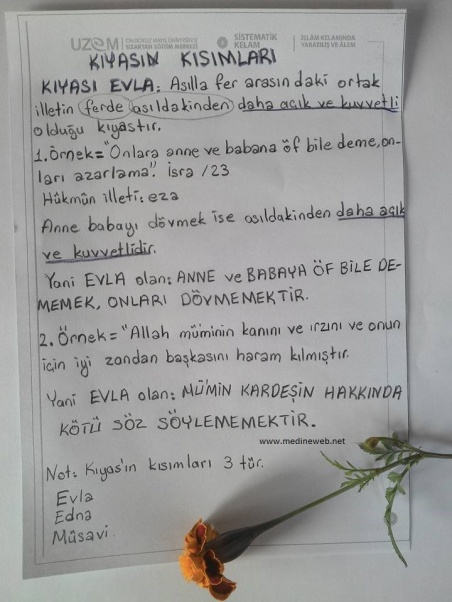 UZEM
ONDOKUZ MAYIS ÜNİVERSİTESİ
UZAKTAN EĞİTİM MERKEZİ
SİSTEMATİK
KELAM
İSLAM KELAMINDA
YARATILIŞ VE ALEM
KIYASIN KISIMLARI
KIYASI EVLA: Asılla fer arasındaki ortak
illetin ferde asıldakinden daha açık ve kuvvetli
olduğu kıyastır.
1.Örnek="Onlara anne ve babana öf bile deme, on-
ları azarlama". İsra /23
Hükmün illeti: eza
Anne babayı dövmek ise asıldakinden daha açık
ve kuvvetlidir.
Yani EVLA olan: ANNE ve BABAYA ÖF BİLE DE-
MEMEK, ONLARI DÖVMEMEKTİR.
2.Örnek="Allah mü'minin kanını ve ırzını ve onun
için iyi zandan başkasını haram kılmıştır.
Yani EVLA olan: MÜ'MİN KARDEŞİN HAKKINDA
KÖTÜ SÖZ SÖYLEMEMEKTİR.
www.medineweb.net
Not: Kıyas'ın kısımları 3 tür.
Evla
Edna
Müsavi